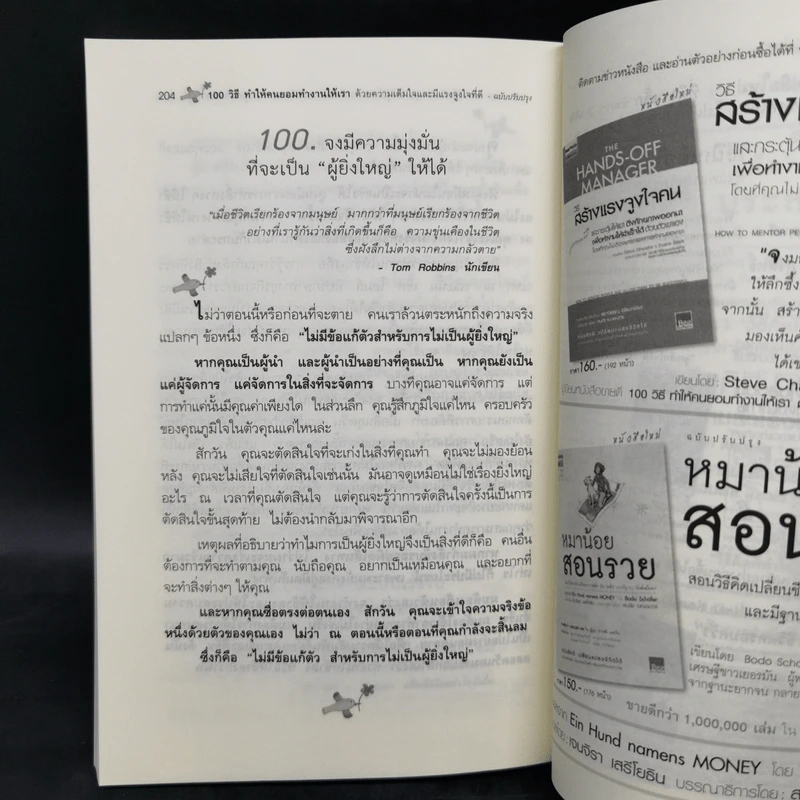 204 100 วิธี ทำให้คนยอมทำงานให้เรา ด้วยความเต็มใจและมีแรงจูงใจที่ดี - ฉบับปรับปรุง
100. จงมีความมุ่งมั่น
ที่จะเป็น “ผู้ยิ่งใหญ่” ให้ได้
“เมื่อชีวิตเรียกร้องจากมนุษย์ มากกว่าที่มนุษย์เรียกร้องจากชีวิต
อย่างที่เรารู้กันว่าสิ่งที่เกิดขึ้นก็คือ ความขุ่นเคืองในชีวิต
ซึ่งฝังลึกไม่ต่างจากความกลัวตาย”
- Tom Robbins นักเขียน
ไม่ว่าตอนนี้หรือก่อนที่จะตาย คนเราล้วนตระหนักถึงความจริง
แปลกๆ ข้อหนึ่ง ซึ่งก็คือ “ไม่มีข้อแก้ตัวสำหรับการไม่เป็นผู้ยิ่งใหญ่”
หากคุณเป็นผู้นำ และผู้นำเป็นอย่างที่คุณเป็น หากคุณยังเป็น
แค่ผู้จัดการ แค่จัดการในสิ่งที่จะจัดการ บางทีคุณอาจแค่จัดการ แต่
การทำแค่นั้นมีคุณค่าเพียงใด ในส่วนลึก คุณรู้สึกภูมิใจแค่ไหน ครอบครัว
ของคุณภูมิใจในตัวคุณแค่ไหนล่ะ
สักวัน คุณจะตัดสินใจที่จะเก่งในสิ่งที่คุณทำ คุณจะไม่มองย้อน
หลัง คุณจะไม่เสียใจที่ตัดสินใจเช่นนั้น มันอาจดูเหมือนไม่ใช่เรื่องยิ่งใหญ่
อะไร ณ เวลาที่คุณตัดสินใจ แต่คุณจะรู้ว่าการตัดสินใจครั้งนี้เป็นการ
ตัดสินใจขั้นสุดท้าย ไม่ต้องนำกลับมาพิจารณาอีก
เหตุผลที่อธิบายว่าทำไมการเป็นผู้ยิ่งใหญ่จึงเป็นสิ่งที่ดีก็คือ คนอื่น
ต้องการที่จะทำตามคุณ นับถือคุณ อยากเป็นเหมือนคุณ และอยากที่
จะทำสิ่งต่างๆ ให้คุณ
และหากคุณซื่อตรงต่อตนเอง สักวัน คุณจะเข้าใจความจริงข้อ
หนึ่งด้วยตัวของคุณเอง ไม่ว่า ณ ตอนนี้หรือตอนที่คุณกำลังจะสิ้นลม
ซึ่งก็คือ “ไม่มีข้อแก้ตัว สำหรับการไม่เป็นผู้ยิ่งใหญ่”
ติดตามข่าวหนังสือ และอ่านตัวอย่างก่อนซื้อได้ที่
หนังสือใหม่
วิธี
สร้างแ
และกระตุ้น
เพื่อทำงา
โดยที่คุณไม่
THE
HANDS-OFF
MANAGER
วิธี
สร้างแรงจูงใจคน
HOW TO MENTOR PE
“จงม
ให้ลึกซึ้ง
จากนั้น สร้า
มองเห็นค
ได้เช
ราคา160.- (192 หน้า)
เขียนโดย: Steve Cha
ผู้เขียนหนังสือขายดี 100 วิธี ทำให้คนยอมทำงานให้เรา
หนังสือใหม่
ฉบับปรับปรุง
หมาน้อ
สอน
หมาน้อย
สอนรวย
สอนวิธีคิดเปลี่ยนชี
และมีฐาน
เขียนโดย Bodo Scha
เศรษฐีชาวเยอรมัน ผู้
จากฐานะยากจน กลาย
ราคา150.- (176 หน้า)
ขายดีกว่า 1,000,000 เล่ม ใน
จาก Ein Hund namens MONEY โดย
โดย: เจนจิรา เสรีโยธิน บรรณาธิการโดย: ส